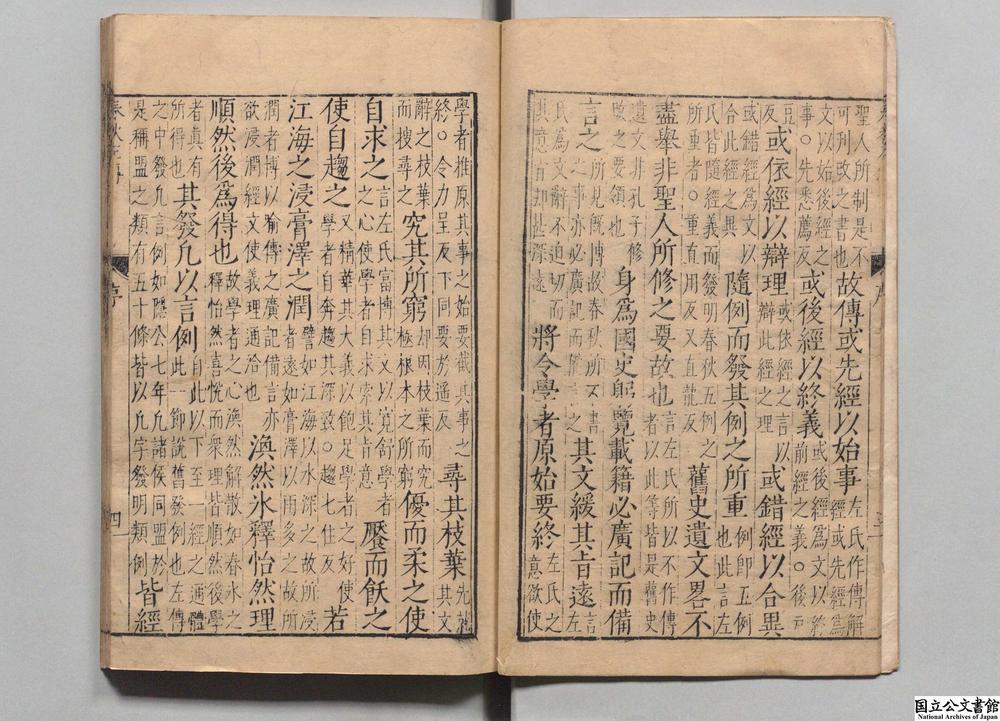 聖人所制是不
可刊改之書也
故傳或先經以始事
左氏作傳解
或先經為
文以始後經之
事○先悉薦反
或後經以終義
或後經為文以終
前經之義○後戶
豆
反
或依經以辯理
或依經之言以
辯此經之理
或錯經以合異
或錯經為文以
合此經之異
隨例而發其例之所重
例即五例
也此言左
氏皆隨經義而發明春秋五例之
所重者○重直用反又直龍反
舊史遺文畧不
盡舉非聖人所修之要故也
言左氏所以不作傳
者以此等皆是舊史
遺文非孔子修
改之要領也
身爲國史躬覽載籍必廣記而備
言之
所見既博故春秋所不書
之事亦必廣記而備言之
其文緩其旨遠
左氏之
言左
氏爲文辭不迫切而
其意旨却甚深遠
將令學者原始要終
意欲使
學者推原其事之始要截其事之
終○令力呈反下同要於遥反
尋其枝葉
先尋
其文
辭之枝葉
而搜尋之
究其所窮
却因枝葉而究
極根本之所窮
優而柔之使
自求之
言左氏富博其文以寬舒學者
之心使學者自求索其旨意
饜而飫之
使自趨之
又精華其大義以飽足學者之好使
學者自奔趨其深致○趨七住反
若
江海之浸膏澤之潤
譬如江海以水深之故所浸
者遠如膏澤以用多之故所
潤者博以喻傳之廣記備言亦
欲浸潤經文使義理通洽也
渙然冰釋怡然理
順然後爲得也
故學者之心渙然解散如春冰之
釋怡然喜悅而衆理皆順然後學
者真有
所得也
其發凡以言例
自此以下至一經之通體
此一節說舊發例也左傳
之中發凡言例如隱公七年凡諸侯同盟於
是稱盟之類有五十條皆以凡字發明類例
皆經
序
四
国立公文書館
National Archives of Japan